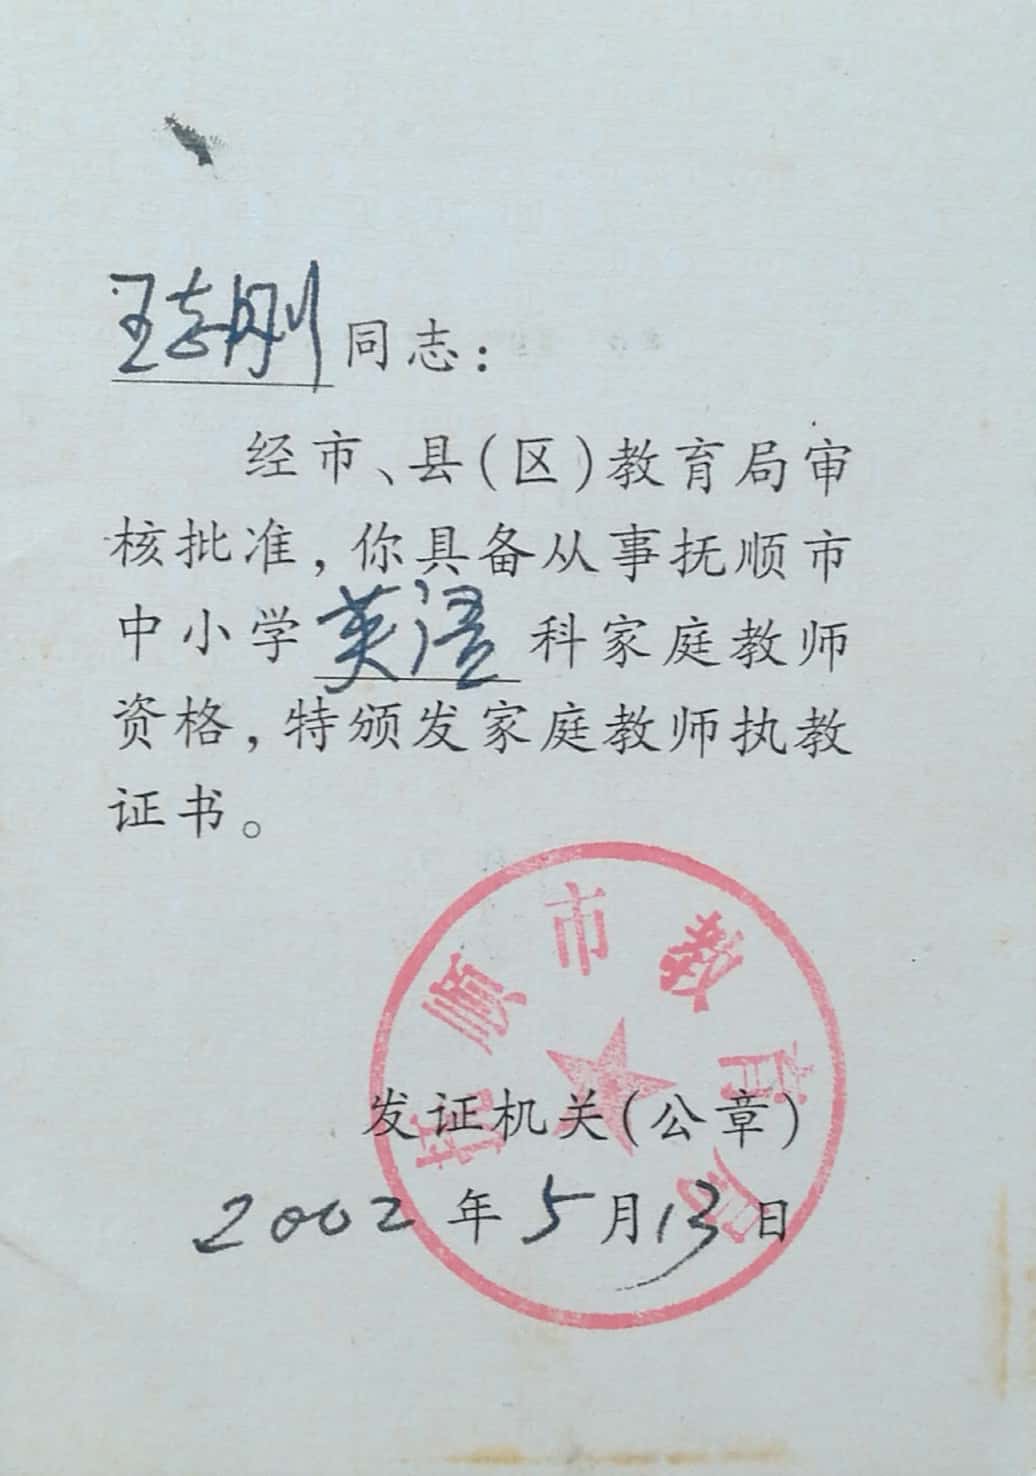 王志刚同志：
经市、县(区)教育局审
核批准，你具备从事抚顺市
中小学英语科家庭教师
资格，特颁发家庭教师执教
证书。
抚顺市教育局
发证机关(公章)
2002年5月13日